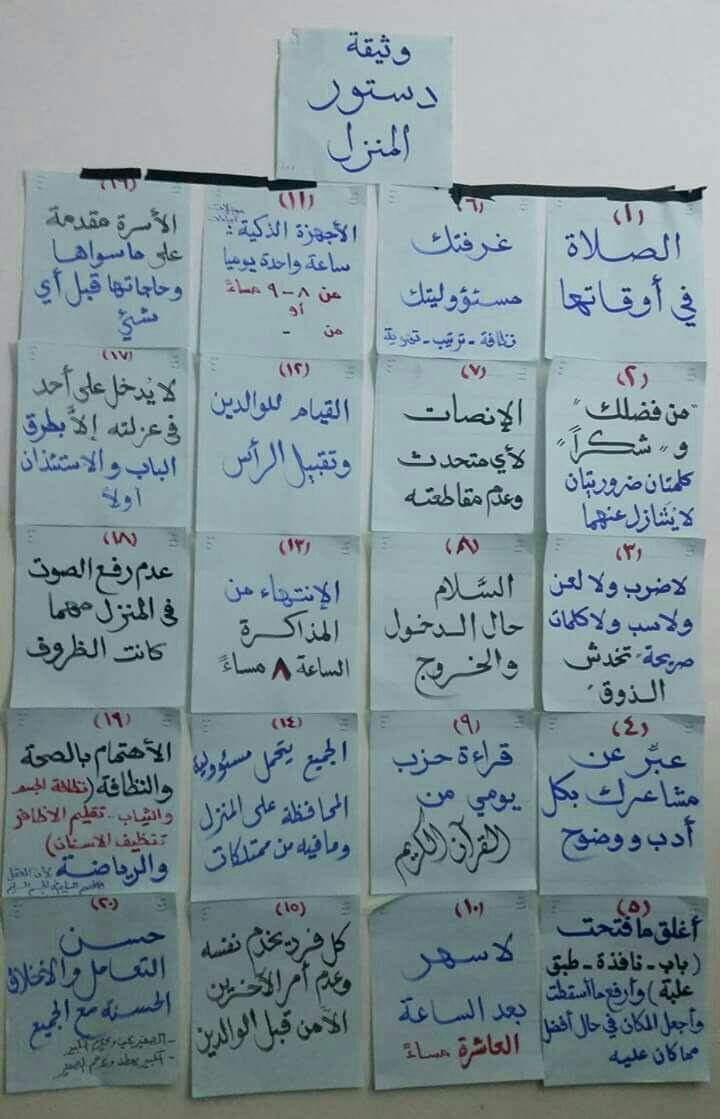 وثيقة
دستور
المنزل
(١)
الصلاة
في أوقاتها
(٢)
"من فضلك"
و"شكراً"
كلمتان ضروريتان
لا يُتنازل عنهما
(٣)
لا ضرب ولا لعن
ولا سب ولا كلمات
صريحة تخدش
الذوق
(٤)
عبِّر عن
مشاعرك بكل
أدب ووضوح
(٥)
أغلق ما فتحت
(باب - نافذة - طبق
علبة) وأرفع ما أسقطت
وأجعل المكان في حال أفضل
مما كان عليه
(٦)
غرفتك
مسئووليتك
نظافة - ترتيب - تهوية
(٧)
الإنصات
لأي متحدث
وعدم مقاطعته
(٨)
السَّلام
حال الدخول
والخروج
(٩)
قراءة حزب
يومي من
القرآن الكريم
(١٠)
لا سهر
بعد الساعة
العاشرة مساءً
(١١)
الأجهزة الذكية:
ساعة واحدة يوميا
من ٨-٩ مساءً
أو
من -
(١٢)
القيام للوالدين
وتقبيل الرأس
(١٣)
الإنتهاء من
المذاكرة
الساعة ٨ مساءً
(١٤)
الجميع يتحمل مسئولية
المحافظة على المنزل
وما فيه من ممتلكات
(١٥)
كل فرد يخدم نفسه
وعدم أمر الآخرين
الأمن قبل الوالدين
(١٦)
الأسرة مقدمة
على ما سواها
وحاجاتها قبل أي
شئ
(١٧)
لا يُدخل على أحد
في عزلته إلاَّ بطرق
الباب والاستئذان
أولاً
(١٨)
عدم رفع الصوت
في المنزل مهما
كانت الظروف
(١٩)
الأهتمام بالصحة
والنظافة (نظافة الجسم
والثياب .. تقليم الاظافر
تنظيف الاسنان)
والرياضة لأن العقل
السليم في الجسم السليم
(٢٠)
حسن
التعامل والأخلاق
الحسنة مع الجميع
- الصغير يحب ويحترم الكبير
- الكبير يعطف ويرحم الصغير